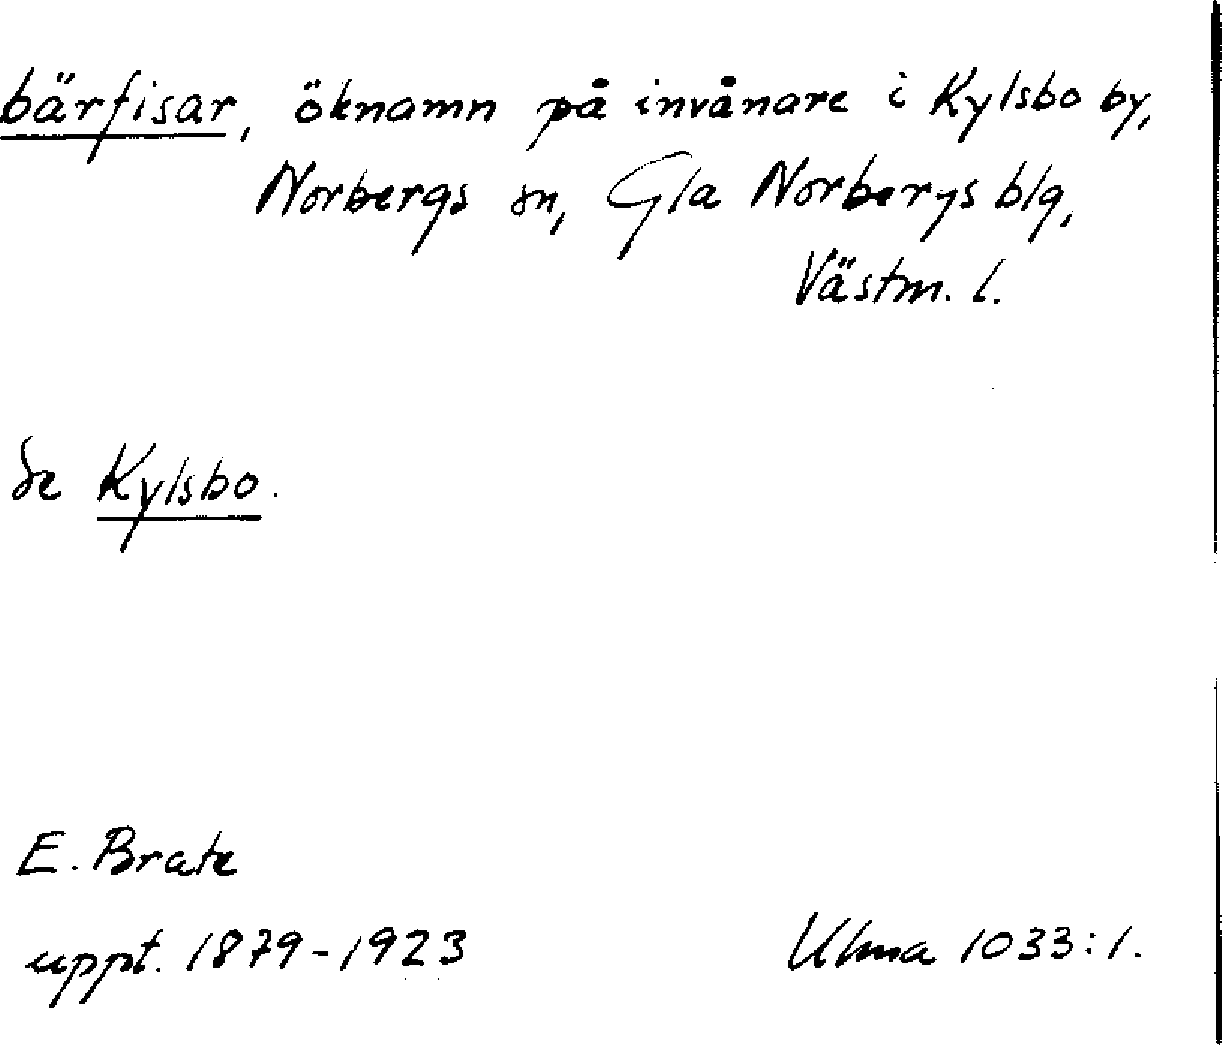 bärfisar, öknamn på invånare i Kylsbo by,
Norbergs sn, Gla Norbergs blg,
Västm. l.
Se Kylsbo.
E. Brate
uppt. 1879-1923
Ulma 1033:1.